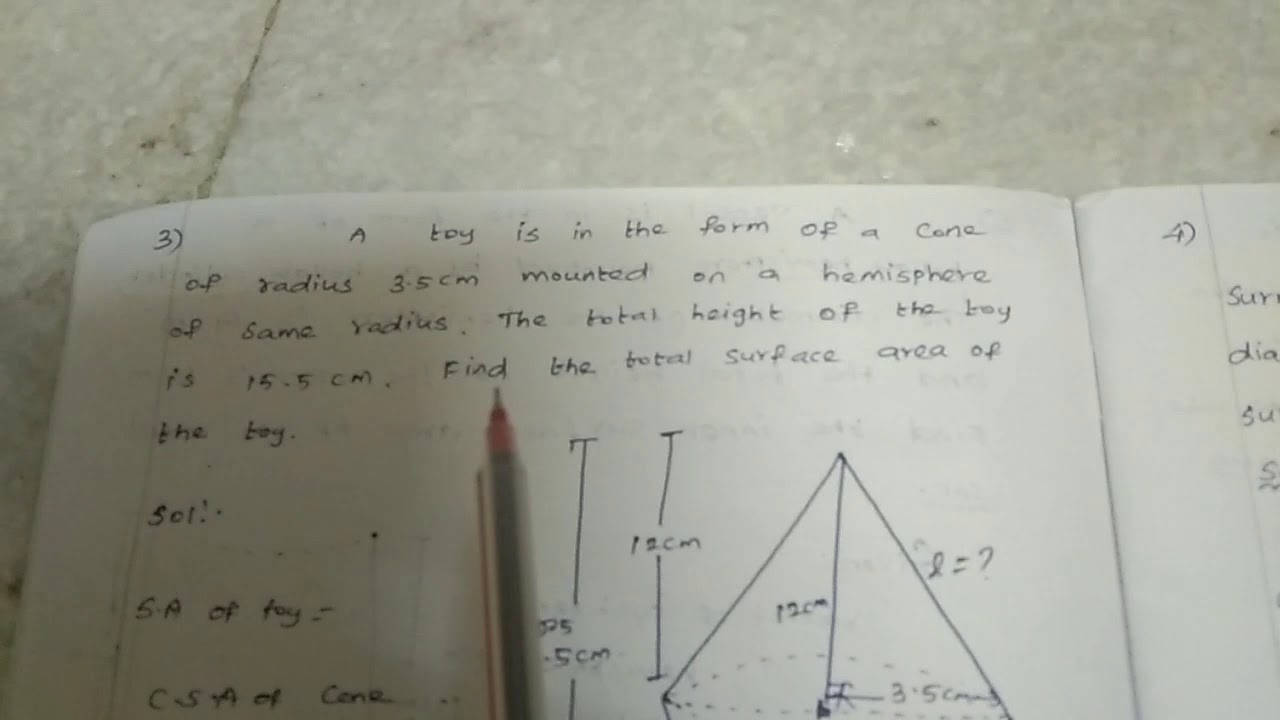 3) A toy is in the form of a cone
of radius 3.5cm mounted on a hemisphere
of same radius. The total height of the toy
is 15.5 cm. Find the total surface area of
the toy.
Sol:-
12cm
l = ?
12cm
S.A of toy =
.5cm
3.5cm
C.S.A of Cone
4)
Sur
dia
su